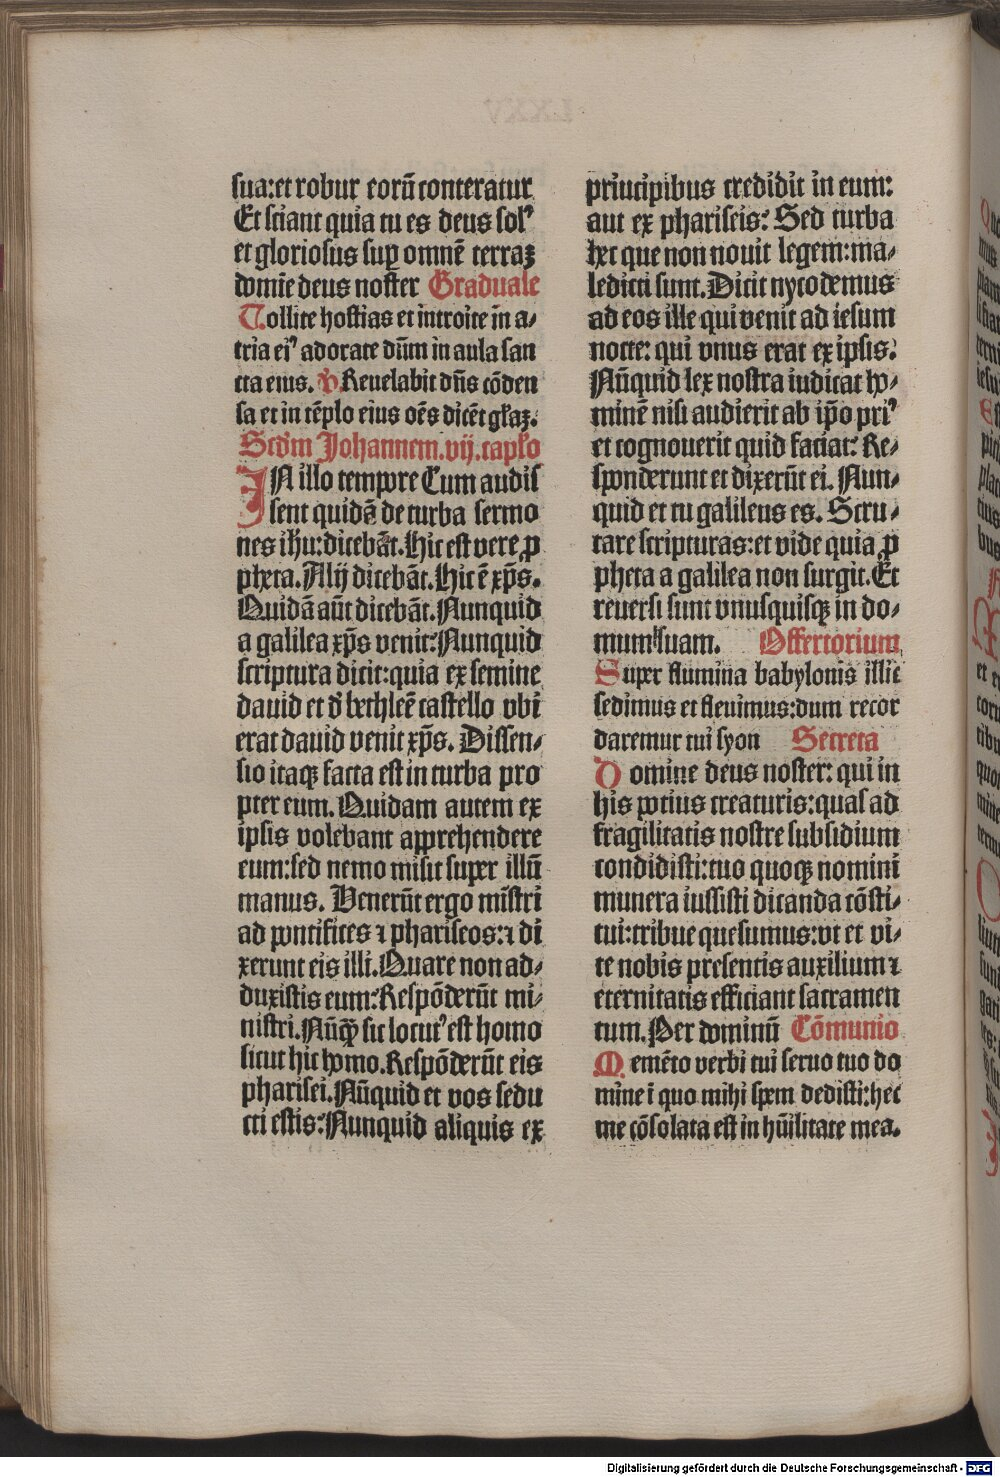 sua:et robur eorū conteratur
Et sciant quia tu es deus solꝰ
et gloriosus suꝑ omnē terraꝫ
domīe deus noster Graduale
Tollite hostias et introite in a⸗
tria eiꝰ adorate dūm in aula san
cta eius. V. Reuelabit dn̄s cōden
sa et in tēplo eius oēs dicēt gl̄aꝫ.
Scd̄m Johannem. vij. capl̄o
IN illo tempore Cum audis
sent quidā de turba sermo
nes ih̄u:dicebāt. Hic est vere ꝓ
pheta. Alij dicebāt. Hic ē xp̄s.
Quidā aūt dicebāt. Nunquid
a galilea xp̄s venit? Nunquid
scriptura dicit: quia ex semine
dauid et d̓ bethleē castello vbi
erat dauid venit xp̄s. Dissen⸗
sio itaqꝫ facta est in turba pro
pter eum. Quidam autem ex
ipsis volebant apprehendere
eum: sed nemo misit super illū
manus. Venerūt ergo mīstri
ad pontifices ⁊ phariseos: ⁊ di
xerunt eis illi. Quare non ad⸗
duxistis eum? Respōderūt mi⸗
nistri. Nūqꝫ sic locutꝰ est homo
sicut hic homo. Respōderūt eis
pharisei. Nūquid et vos sedu
cti estis? Nunquid aliquis ex
principibus credidit in eum:
aut ex phariseis? Sed turba
hec que non nouit legem: ma⸗
ledicti sunt. Dicit nycodemus
ad eos ille qui venit ad iesum
nocte: qui vnus erat ex ipsis?
Nūquid lex nostra iudicat ho⸗
minē nisi audierit ab ip̄o priꝰ
et cognouerit quid faciat? Re⸗
sponderunt et dixerūt ei. Nun⸗
quid et tu galileus es. Scru⸗
tare scripturas: et vide quia ꝓ
pheta a galilea non surgit. Et
reuersi sunt vnusquisqꝫ in do⸗
mum suam. Offertorium
Super flumina babylonis illic
sedimus et fleuimus: dum recor
daremur tui syon Secreta
Domine deus noster: qui in
his potius creaturis: quas ad
fragilitatis nostre subsidium
condidisti: tuo quoqꝫ nomini
munera iussisti dicanda cōsti⸗
tui: tribue quesumus: vt et vi⸗
te nobis presentis auxilium ⁊
eternitatis efficiant sacramen
tum. Per dominū Cōmunio
Memēto verbi tui seruo tuo do
mine ī quo mihi spem dedisti: hec
me cōsolata est in hūilitate mea.
Digitalisierung gefördert durch die Deutsche Forschungsgemeinschaft - DFG